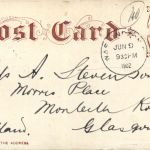 Post Card
JUN 9
930PM
1902
s A. Stevenson
Morris Place
Monteith Ro
Glasgow
land.
THE ADDRESS